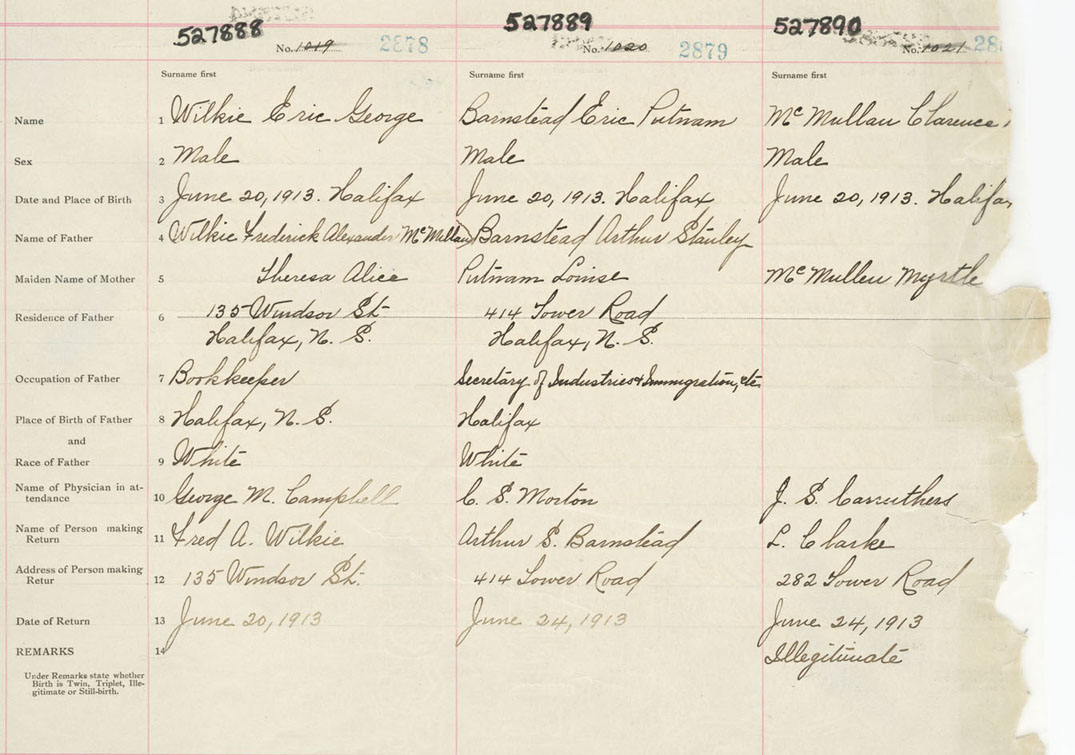 527888 527889 527890
No. 1019 2878 No. 1020 2879 No. 1021 288
Surname first Surname first Surname first
Name 1 Wilkie Eric George Barnstead Eric Putnam McMullan Clarence
Sex 2 Male Male Male
Date and Place of Birth 3 June 20, 1913. Halifax June 20, 1913. Halifax June 20, 1913. Halifax
Name of Father 4 Wilkie Frederick Alexander McMillan) Barnstead Arthur Stanley
Maiden Name of Mother 5 Theresa Alice Putnam Louise McMullen Myrtle
Residence of Father 6 135 Windsor St. 414 Tower Road
Halifax, N. S. Halifax, N. S.
Occupation of Father 7 Bookkeeper Secretary of Industries & Immigration, etc
Place of Birth of Father 8 Halifax, N. S. Halifax
and
Race of Father 9 White White
Name of Physician in at-
tendance 10 George M. Campbell C. S. Morton J. S. Carruthers
Name of Person making
Return 11 Fred A. Wilkie Arthur S. Barnstead L. Clarke
Address of Person making
Retur 12 135 Windsor St. 414 Tower Road 282 Tower Road
Date of Return 13 June 20, 1913 June 24, 1913 June 24, 1913
REMARKS 14 Illegitimate
Under Remarks state whether
Birth is Twin, Triplet, Ille-
gitimate or Still-birth.